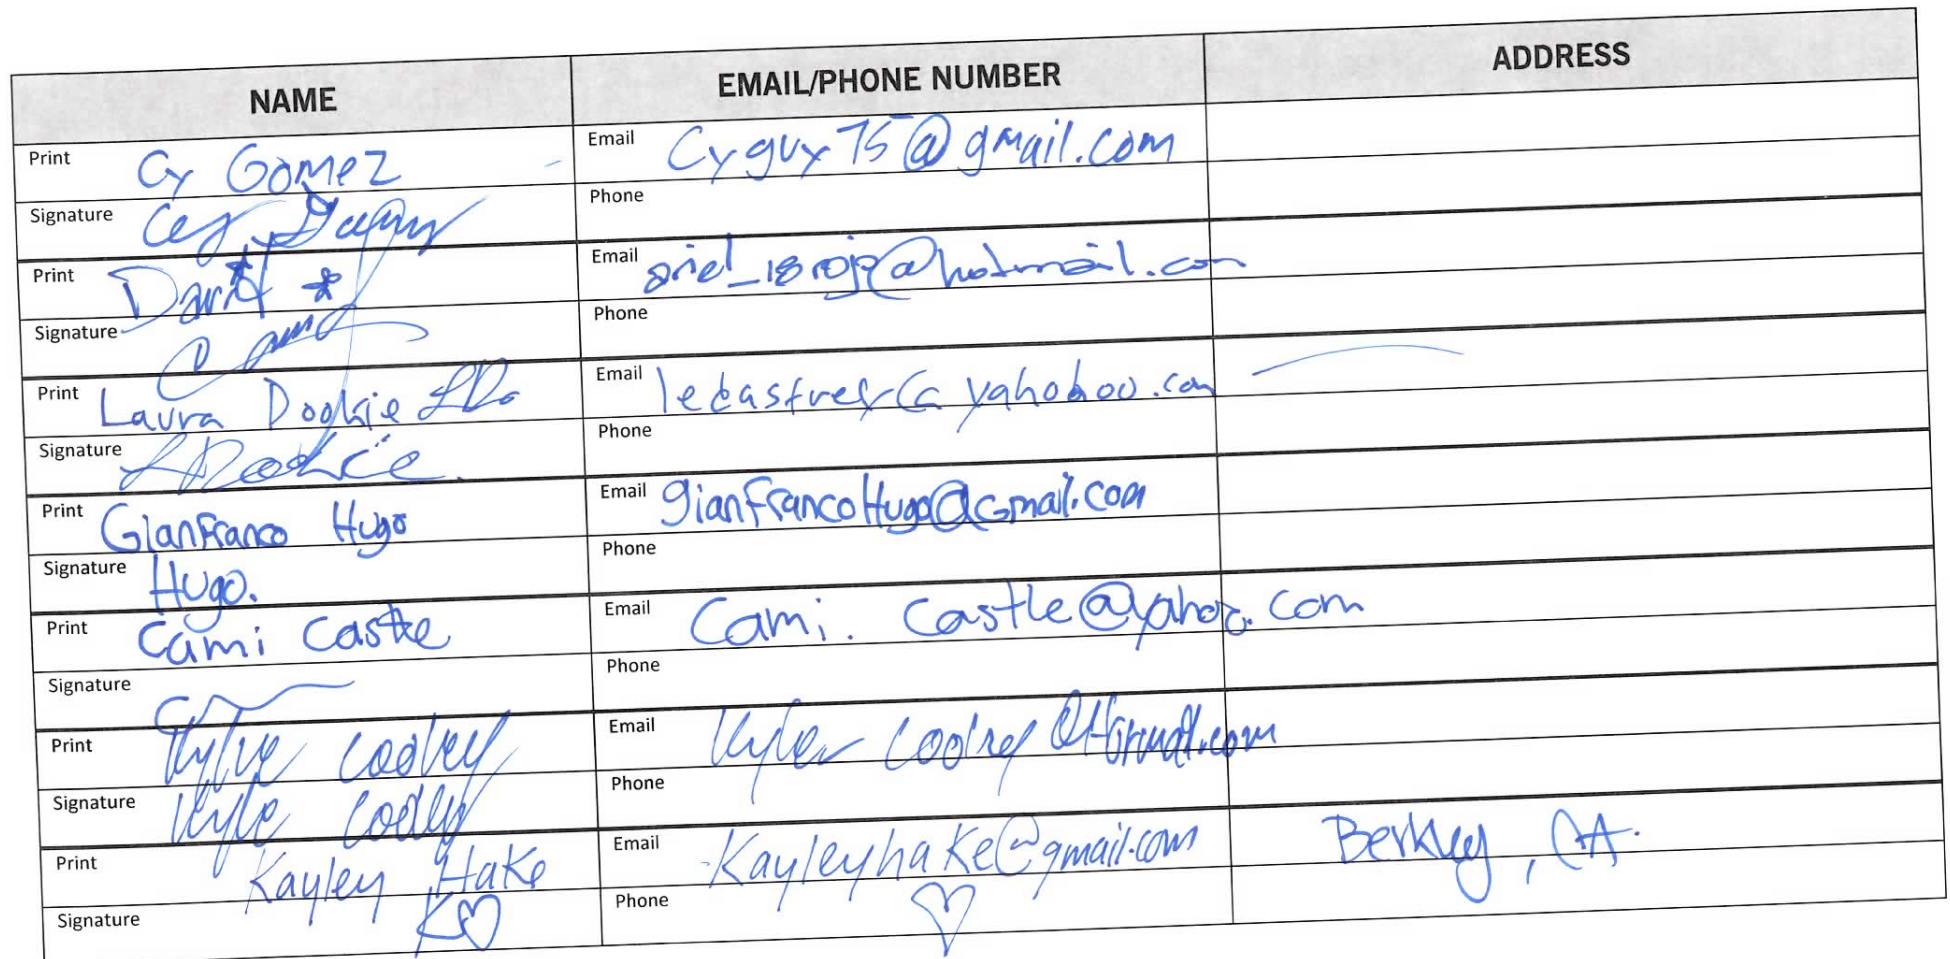 NAME EMAIL/PHONE NUMBER ADDRESS
Print Cy Gomez Email Cyguy75@gmail.com
Signature Phone
Print Email @hotmail.com
Signature Phone
Print Laura Dookie LD. Email yahohoo.com
Signature LDookie. Phone
Print Gianfranco Hugo Email gianfrancoHugo@Gmail.com
Signature Hugo. Phone
Print Cami Castle Email Cami.Castle@yahoo.com
Signature Phone
Print Cooley Email Kyler
Signature Kyle Cooley Phone
Print Kayley Hake Email Kayleyhake@gmail.com Berkley, CA.
Signature K♡ Phone ♡